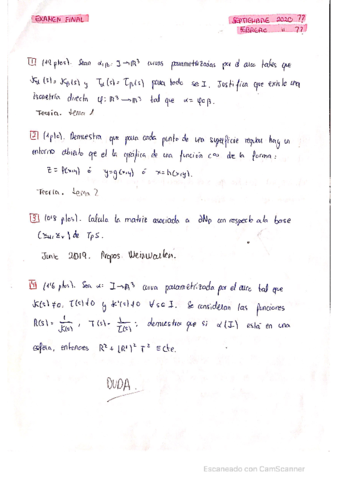 EXAMEN FINAL
SEPTIEMBRE 2020
FEBRERO
1 (1'2 ptos). Sean α,β: I→R³ curvas parametrizadas por el arco tales que
Kα(s) = Kβ(s) y Tα(s) = Tβ(s) para todo s∈I. Justifica que existe una
isometría directa φ: R³→R³ tal que α = φ∘β.
Teoría. tema 1
2 (1 pto). Demuestra que para cada punto de una superficie regular hay un
entorno abierto que es la gráfica de una función C∞ de la forma:
z = f(x,y) ó y=g(x,y) ó x=h(x,y).
Teoría. tema 2
3 (0'8 ptos). Calcula la matriz asociada a dNp con respecto a la base
(xu, xv) de TpS.
Junio 2019. Propos. Weingarten.
4 (1'6 ptos). Sea α: I→R³ curva parametrizada por el arco tal que
K(s)≠0, T(s)≠0 y K'(s)≠0 ∀s∈I. Se consideran las funciones
R(s) = 1/K(s), T(s) = 1/T(s); demuestra que si α(I) está en una
esfera, entonces R² + (R')² T² ≡ cte.
DUDA.
Escaneado con CamScanner